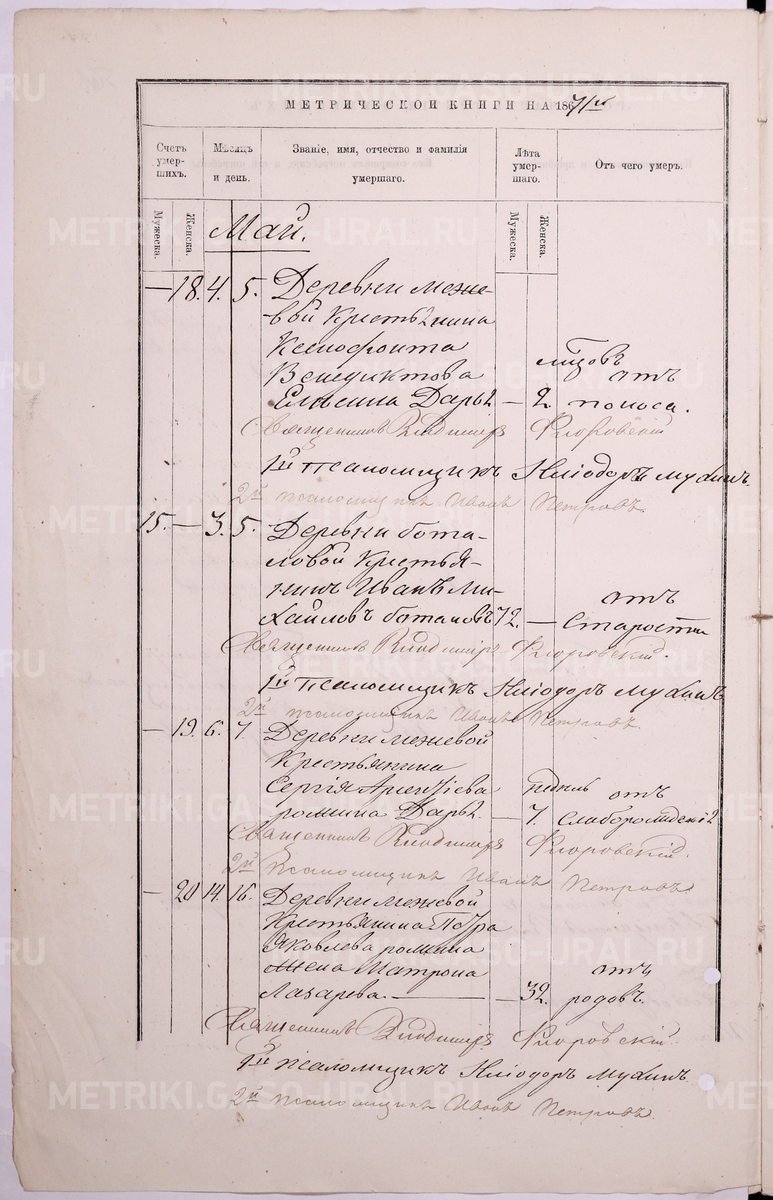 МЕТРИЧЕСКОЙ КНИГИ НА 1867/71й
Счетъ умерших.
Мѣсяцъ и день.
Званіе, имя, отчество и фамилія умершаго.
Лѣта умершаго.
Отъ чего умеръ.
Мужеска.
Женска.
Мужеска.
Женска.
Май.
— 18. 4. 5. Деревни меже-
вой Крестьянина
Ксенофонта
Венедиктова
Дарья — 2. отъ
поноса.
Священникъ Владимиръ Флоровскій
1й псаломщикъ Иліодоръ Мухинъ.
2й псаломщикъ Иванъ Петровъ.
15. — 3. 5. Деревни Бота-
ловой Крестья-
нинъ Иванъ Ми-
хайловъ Боталовъ 72. — отъ
Старости
Священникъ Владимиръ Флоровскій.
1й псаломщикъ Иліодоръ Мухинъ
2й псаломщикъ Иванъ Петровъ.
— 19. 6. 7. Деревни межевой
Крестьянина
Сергія
Дарья. — 7. отъ
Священникъ Владимиръ Флоровскій.
2й псаломщикъ Иванъ Петровъ.
— 20 14. 16. Деревни межевой
Крестьянина Петра
Яковлева ромина
жена Матрона отъ
Лазарева. — — 32. родовъ.
Священникъ Владимиръ Флоровскій.
1й псаломщикъ Иліодоръ Мухинъ.
2й псаломщикъ Иванъ Петровъ.
METRIKI.GASO-URAL.RU